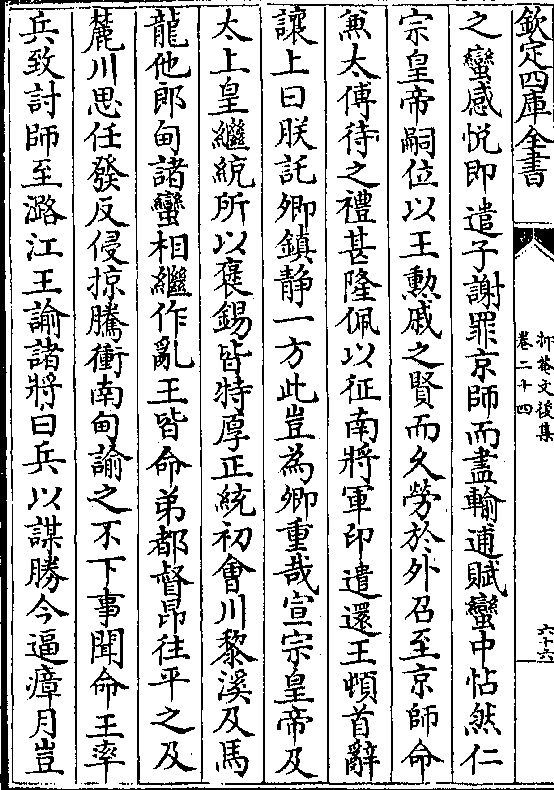 欽定四庫全書
抑菴文後集
卷二十四
六十六
之蠻感悅即遣子謝罪京師而盡輸逋賦蠻中怗然仁
宗皇帝嗣位以王勲戚之賢而久勞於外召至京師命
兼太傅待之禮甚隆佩以征南將軍印遣還王頓首辭
讓上曰朕託卿鎮静一方此豈為卿重哉宣宗皇帝及
太上皇繼統所以褒錫皆特厚正統初㑹川黎溪及馬
龍他郎甸諸蠻相繼作亂王皆命弟都督昂往平之及
麓川思任發反侵掠騰衝南甸諭之不下事聞命王率
兵致討師至潞江王諭諸將曰兵以謀勝今逼瘴月豈